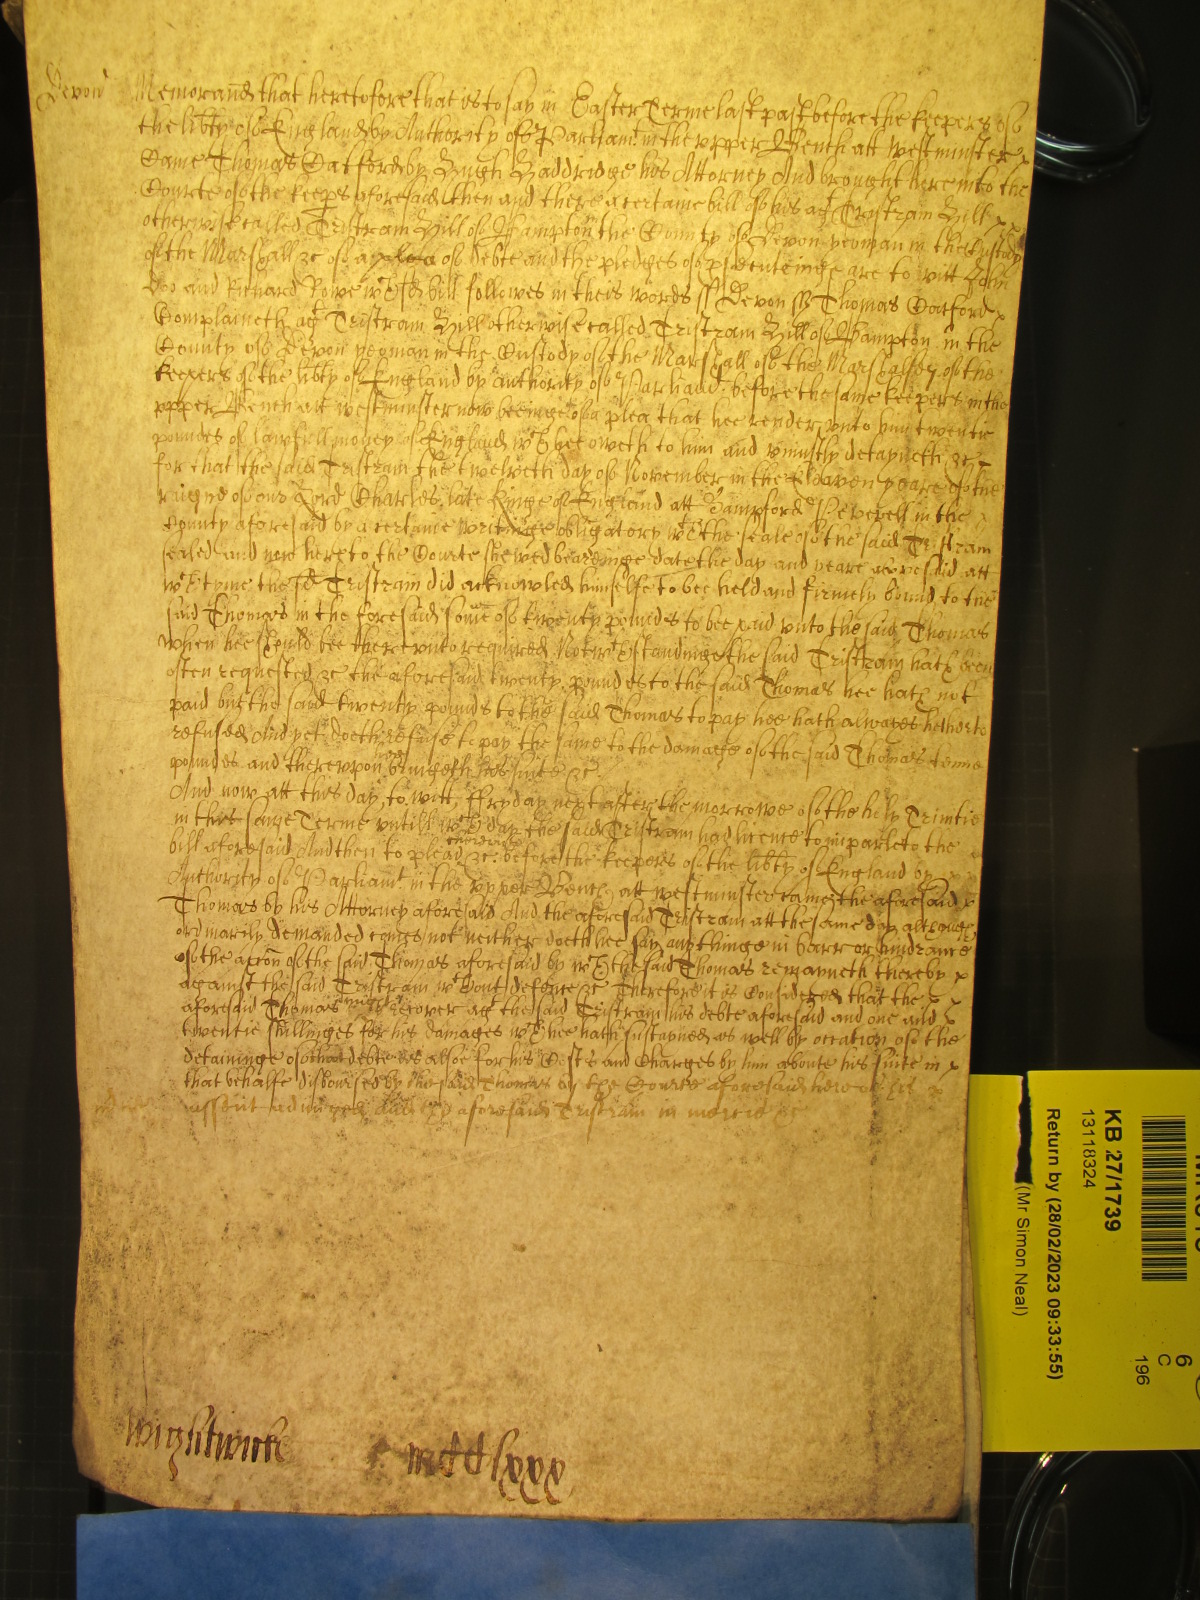 Devon Memorand that heretofore that is to say in Easter Terme last past before the keepers of
the libty of England by Authority of Parliamt in the vpper Bench att Westminster
Came Thomas Oatford by Hugh Baddridge his Attorney And brought here into the
Courte of the keeps aforesaid then and there a certaine bill of his agt Tristram Hill
otherwise called Tristram Hill of in the County of Devon yeoman in the Custody
of the Marshall &c of a plea of debte and the pledges of psecuteinge are to witt John
Doo and Richard Rowe wch sd bill followes in theis words ss Devon ss Thomas Oatford
Complaineth agt Tristram Hill otherwise called Tristram Hill of in the
County of Devon yeoman in the Custody of the Marshall of the Marshalsey of the
keepers of the libty of England by authority of Parliamt before the same keepers in the
vpper Bench att Westminster now beeinge of a plea that hee render vnto him twentie
poundes of lawfull money of England wch hee oweth to him and vniustly detayneth &c
for that the said Tristram the twelveth day of November in the yeare of the
raigne of our Lord Charles late Kinge of England att Bampford Peverell in the
County aforesaid by a certaine writeinge obligatory wth the seale of the said Tristram
sealed and now here to the Courte shewed beareinge date the day and yeare aforesaid att
wch tyme the sd Tristram did acknowled himselfe to bee held and firmely bound to the
said Thomas in the foresaid some of twenty poundes to bee paid vnto the said Thomas
when hee should bee therevnto required Notwthstandinge the said Tristram hath been
often requested &c the aforesaid twenty poundes to the said Thomas hee hath not
paid but the said twenty pounds to the said Thomas to pay hee hath alwaies hitherto
refused And yet doeth refuse to pay the same to the damage of the said Thomas tenne
poundes and therevpon hee bringeth his suite &c
And now att this day to witt ffryday next after the morrowe of the holy Trinitie
in this same Terme vntill wch day the said Tristram had licence to imparle to the
bill aforesaid And then to plead &c before the keepers of the libty of England by
Authority of Parliamt in the vpper Bench att Westminster came the aforesaid
Thomas by his Attorney aforesaid And the aforesaid Tristram att the same day although
ordinarily demanded comes not neither doeth hee say any thinge in barr or hindrance
of the accon of the said Thomas aforesaid by wch the said Thomas remayneth thereby
against the said Tristram wthout defence &c Therefore it is Considered that the
aforesaid Thomas might recover agt the said Tristram his debte aforesaid and one and
twentie shillinges for his damages wch hee hath sustayned as well by occation of the
detaininge of that debte as alsoe for his Costs and Charges by him aboute his suite in
that behalfe disboursed by the said Thomas by the Courte aforesaid here
assent adiudged And the aforesaid Tristram in mercie &c
Wightwick mddlxxx
KB 27/1739
13118324
Return by (28/02/2023 09:33:55)
(Mr Simon Neal)
6
C
196